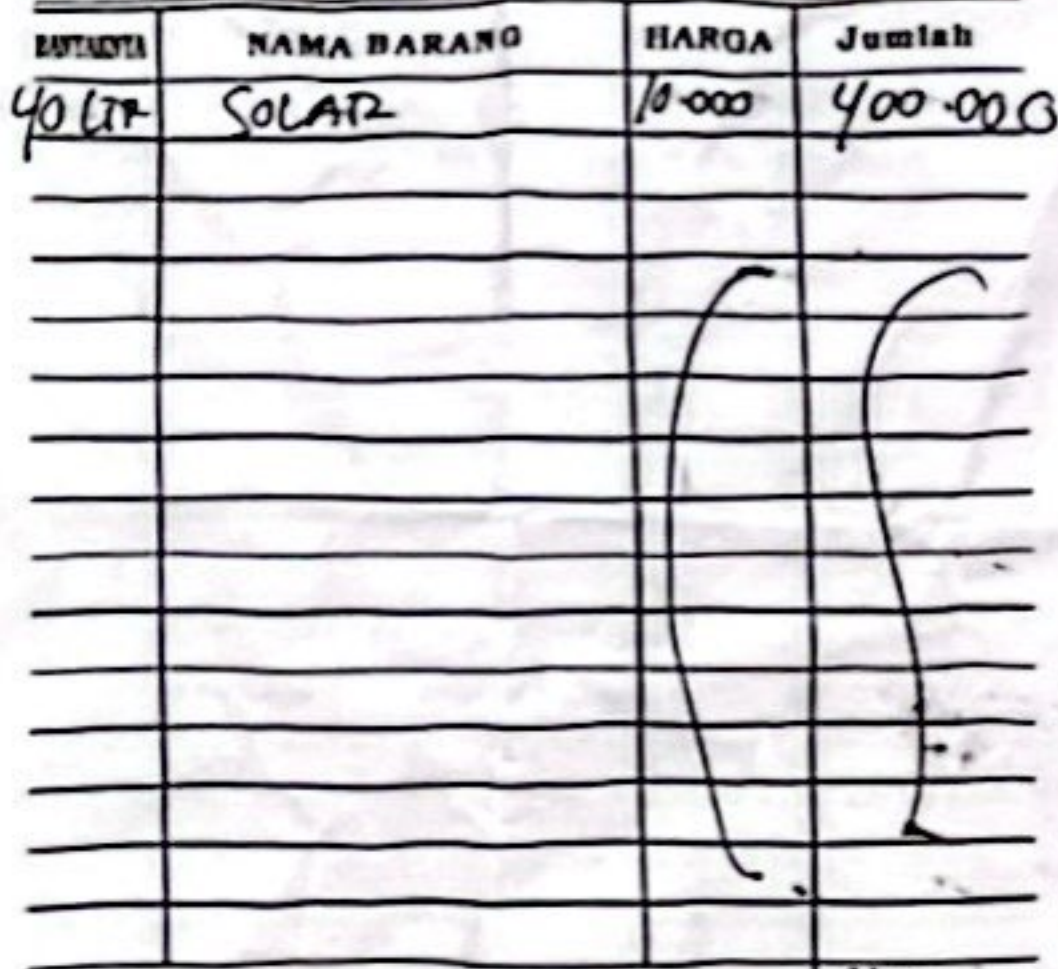 BANYAKNYA NAMA BARANG HARGA Jumlah
40 LTR SOLAR 10.000 400.000